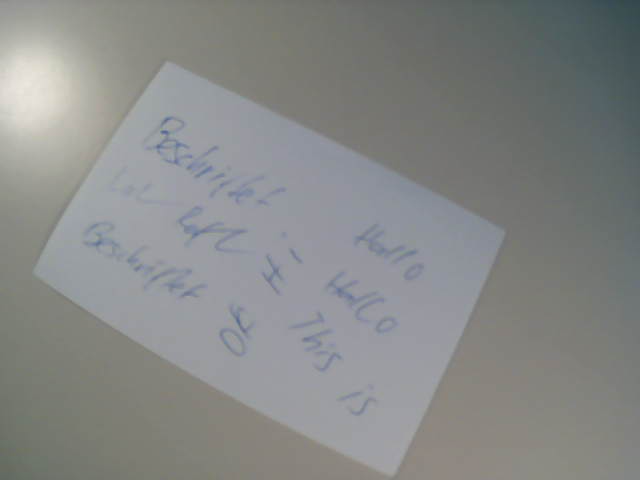 Beschriftet Hallo
LOL Hallo
Beschriftet This is